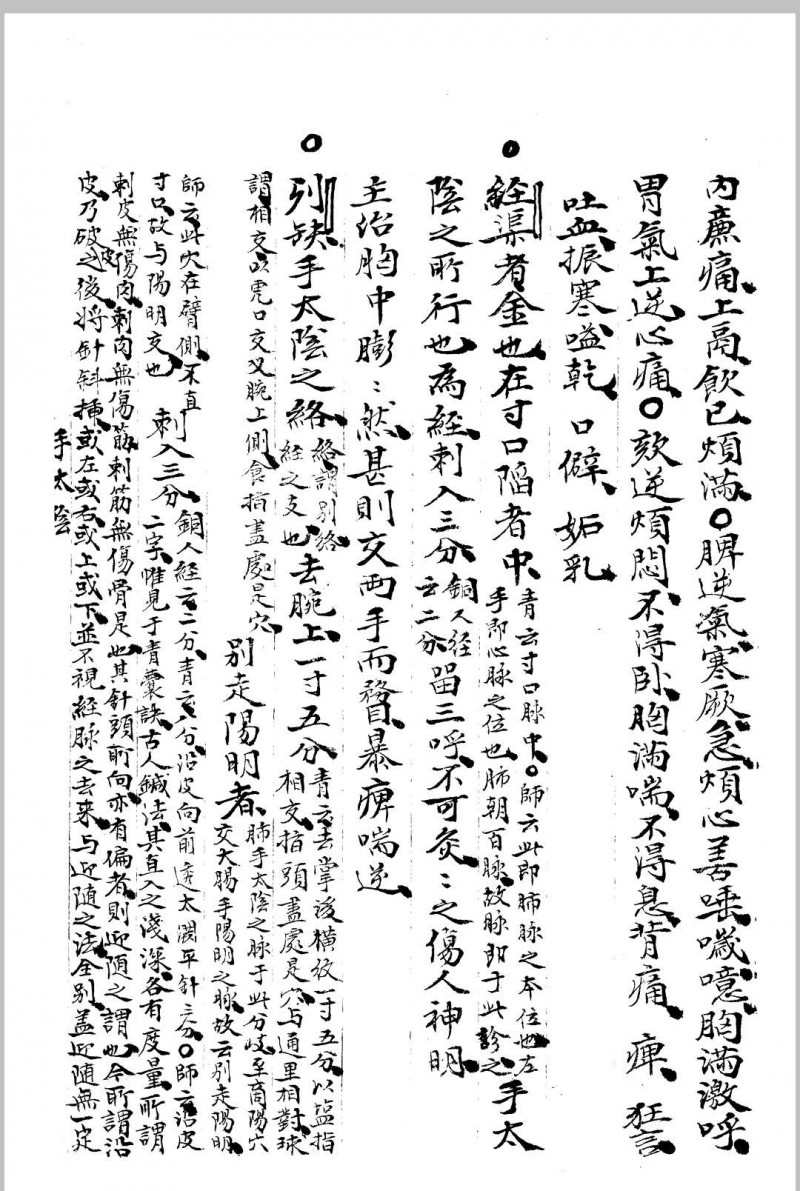 內廉痛上鬲飲已煩滿○脾逆氣寒厥急煩心善唾噦噫胸滿激呼
胃氣上逆心痛○欬逆煩悶不得臥胸滿喘不得息背痛 痺 狂言
吐血振寒嗌乾 口僻 妬乳
○
經渠者金也在寸口陷者中青云寸口脉中○師云此即肺脉之本位也左
手即心脉之位也肺朝百脉故脉即于此診之手太
陰之所行也為經刺入三分銅人經
云二分留三呼不可灸〻之傷人神明
主治胸中膨〻然甚則交兩手而瞀暴痺喘逆
○
列缺手太陰之絡絡謂別絡
經之支也去腕上一寸五分青云去掌後橫紋一寸五分以盐指
相交指頭盡處是穴与通里相對球
謂相交以虎口交叉腕上側食指盡處是穴
別走陽明者肺手太陰之脉于此分歧至商陽穴
交大腸手陽明之脉故云別走陽明
師云此穴在臂側不直
寸口故与陽明交也 刺入三分銅人經云二分青云八分沿皮向前透太淵平針三分○師云沿皮
二字惟見于青囊訣古人鍼法其直入之淺深各有度量所謂
刺皮無傷肉刺肉無傷筋刺筋無傷骨是也其針頭所向亦有偏者則迎随之謂也今所謂沿
皮乃破皮之後将針斜插或左或右或上或下並不視經脉之去来与迎随之法全别盖迎随無一定
手太陰